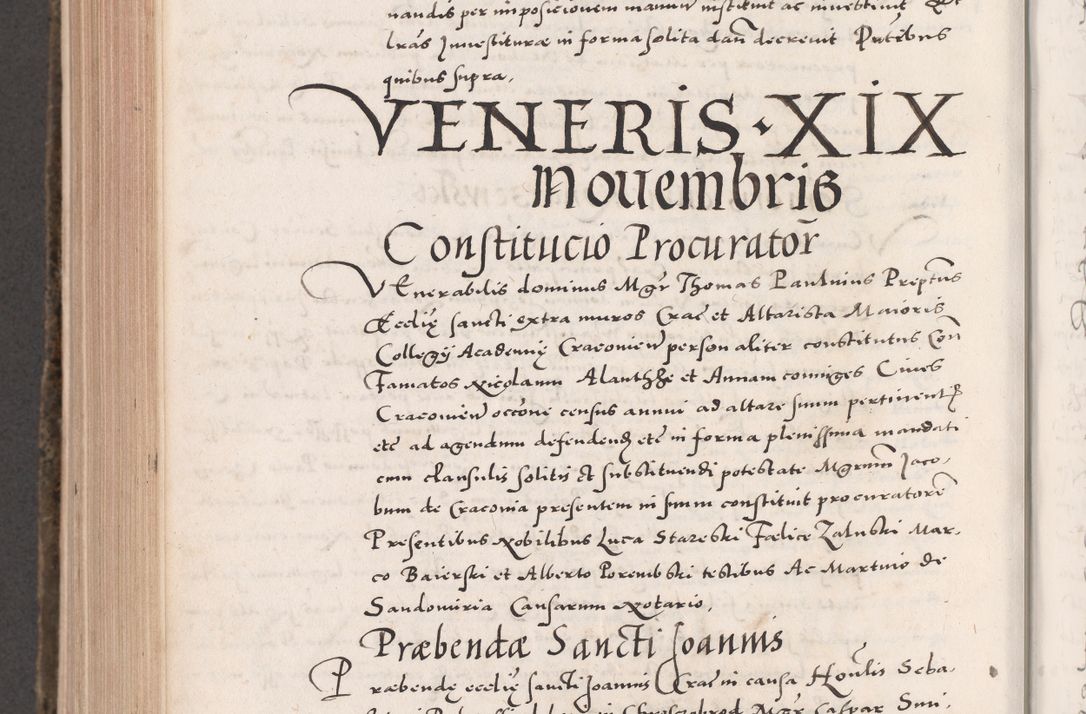 nandis per imposicionem manuum instituit ac investivit
lras Investituræ in forma solita dan̄ decrevit Pntibus
quibus supra.
VENERIS · XIX
Novembris
Constitucio Procurator̄
VEnerabilis dominus Mgr Thomas Paulinius Preptus
Eccliȩ sancti extra muros Crac et Altarista Maioris
Collegij Academiȩ Cracovien personaliter constitutus Con
Famatos Nicolaum Alanthze et Annam coniuges Cives
Cracovien occōne census annui ad altare suum pertinent
etc ad agendum defendend etc in forma plenissima mandati
cum clausulis solitis et substituendi potestate Mgrum Jaco-
bum de Cracovia presentem in suum constituit procuratorē
Presentibus Nobilibus Luca Stareski Fælice Zaluski Mar-
co Baierski et Alberto Porembski testibus Ac Martino de
Sandomiria Causarum Notario.
Præbendæ Sancti Joannis
Præbendȩ eccliȩ sancti Joannis Crac in causa Honlis Seba-
Mgr Caspar